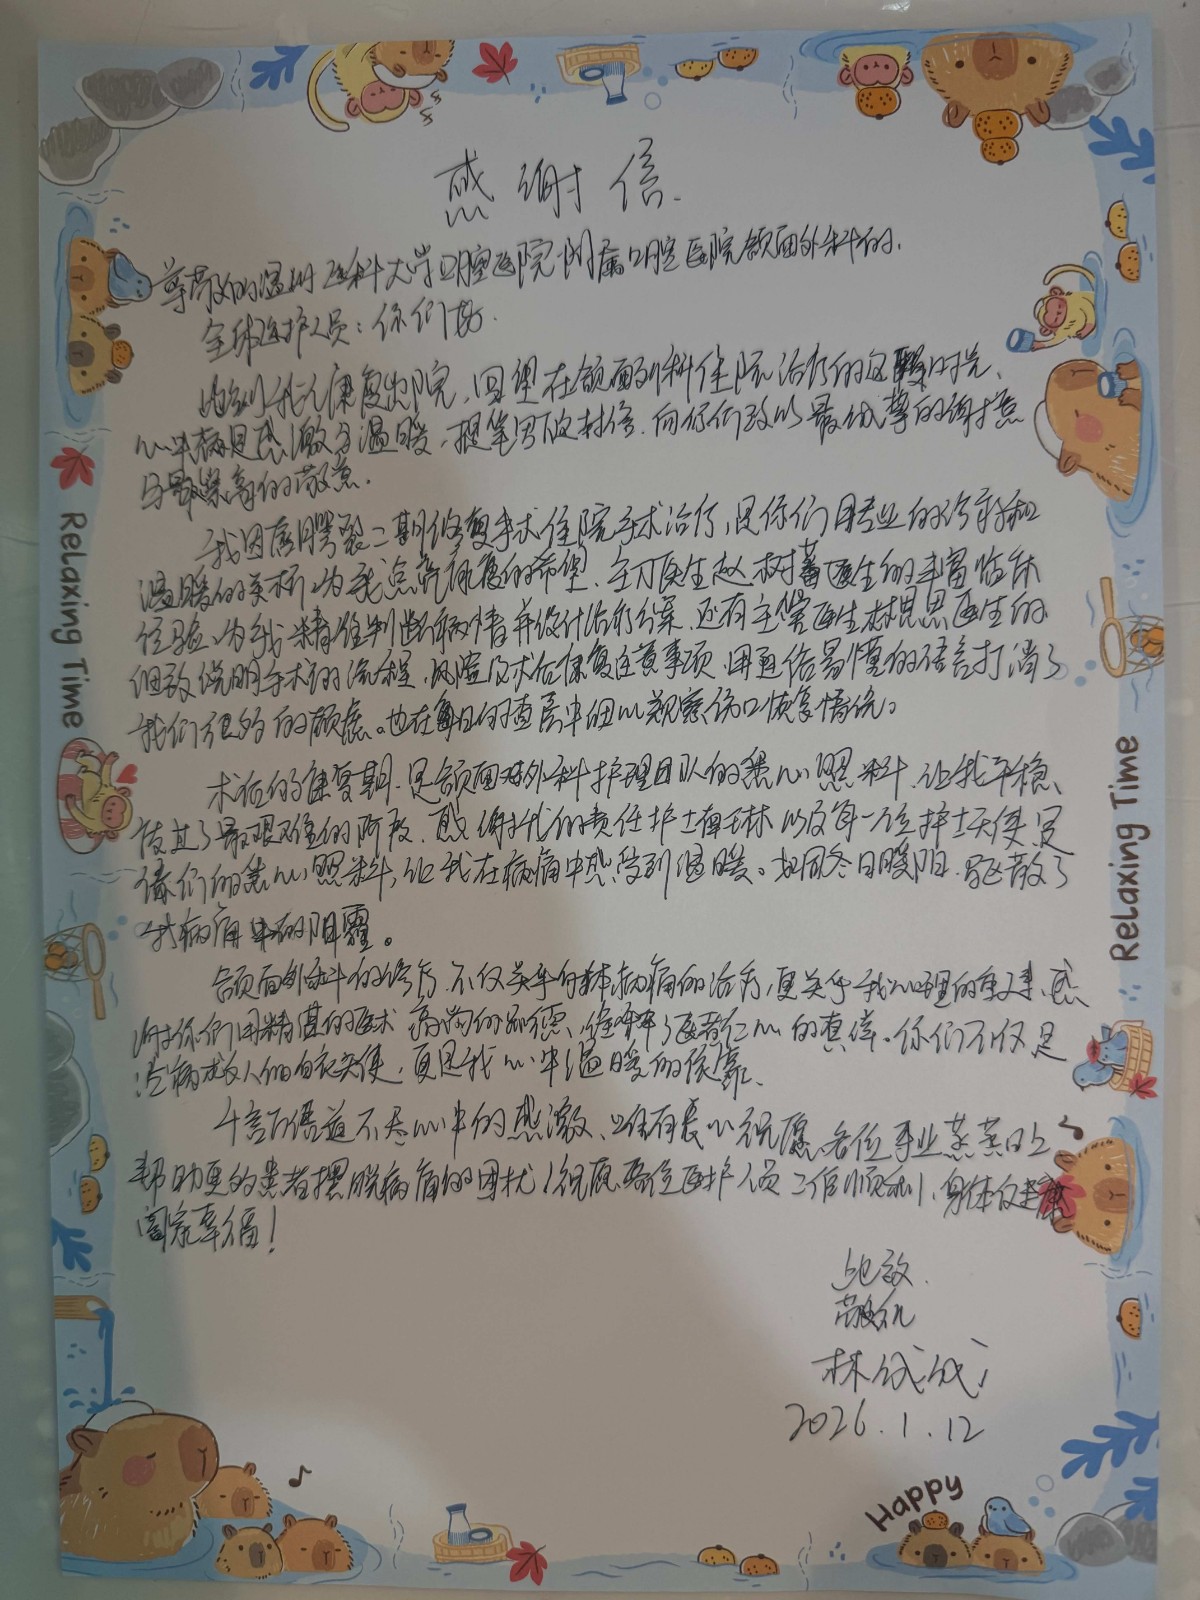 感谢信
尊敬的温州医科大学口腔医院附属口腔医院颌面外科的.
全体医护人员：你们好.
我康复出院，回望在颌面外科住院治疗的这段时光、
心中满是感激与温暖，提笔写下这封信.向你们致以最诚挚的谢意
与最崇高的敬意.
我因唇腭裂二期修复手术住院手术治疗，是你们用专业的诊疗和
温暖的关怀，为我点亮康复的希望、主刀医生赵树蕃医生的丰富临床
经验、为我精准判断病情并设计治疗方案、还有主管医生林思思医生的
细致说明手术的流程、风险及术后恢复注意事项、用通俗易懂的语言打消了
我们很多的顾虑。也在每日的查房中细心观察伤口恢复情况。
术后的康复期.是颌面外科护理团队的悉心照料、让我平稳、
度过了最艰难的阶段、感谢我的责任护士 林以及每一位护士天使是
你们的悉心照料，让我在病痛中感受到温暖。如同冬日暖阳.驱散了
我病痛中的阴霾。
颌面外科的治疗、不仅关乎身体病痛的治疗，更关乎我心理的重建、感
谢你们用精湛的医术 高尚的品德、诠释了医者仁心的真谛。你们不仅是
治病救人的白衣天使，更是我心中温暖的依靠、
千言万语道不尽心中的感激、唯有衷心祝愿各位事业蒸蒸日上
帮助更多的患者摆脱病痛的困扰！祝愿各位医护人员工作顺利、身体健康
阖家幸福！
此致.
敬礼
林成成
2026.1.12
Relaxing Time
Relaxing Time
Happy